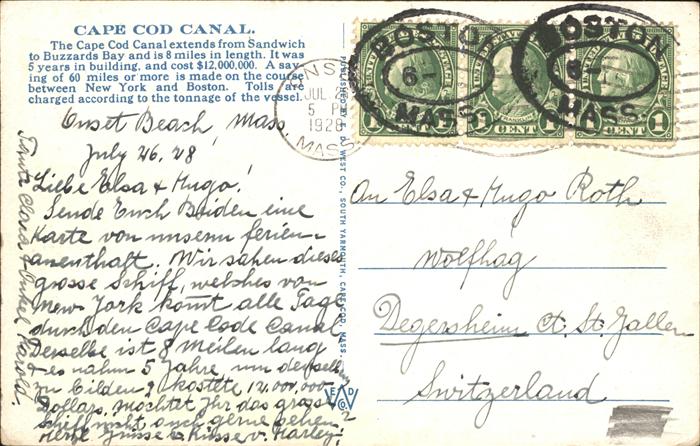 CAPE COD CANAL.
The Cape Cod Canal extends from Sandwich
to Buzzards Bay and is 8 miles in length. It was
5 years in building, and cost $12,000,000. A sav-
ing of 60 miles or more is made on the course
between New York and Boston. Tolls are
charged according to the tonnage of the vessel.
Onset Beach, Mass.
July 26. 28
Liebe Elsa & Hugo!
Sende Euch Beiden eine
Karte von unserm ferien-
aufenthalt. Wir sahen dieses
grosse Schiff, welches von
New York komt alle Tage
durch den Cape Code Canal
Derselbe ist 8 Meilen lang
& es nahm 5 Jahre, um denselben
zu bilden & kostete 12,000,000
Dollars, möchtet Ihr das grosse
Schiff nicht auch gerne sehen?
Herzl Grüsse & Küsse v. Harley!
Tante Clara & Onkel Harold.
PUBLISHED BY E. D. WEST CO., SOUTH YARMOUTH, CAPE COD, MASS.
E D
W
CO
ONSET
JUL 2
5 PM
1928
MASS.
BOSTON
6
MASS.
BOSTON
6
MASS.
UNITED STATES POSTAGE
FRANKLIN
1 CENT 1
An Elsa & Hugo Roth
Wolfhag
Degersheim Ct. St. Gallen
Switzerland